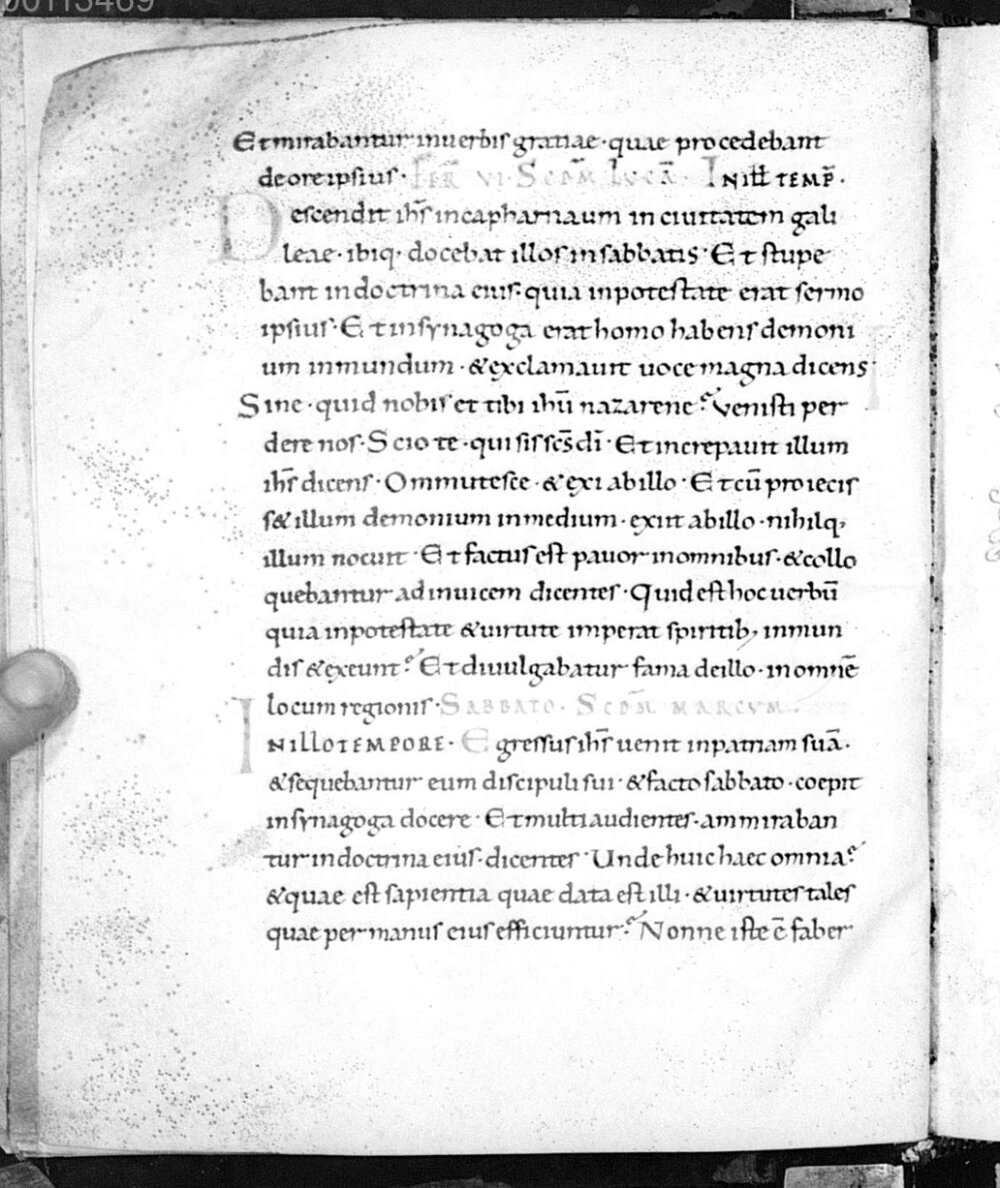 00113469
Et mirabantur inuerbis gratiae · quae procedebant
deoreipsius · FER̅ VI · SCD̅M LVCA̅ · IN ILL̅ TEMP̅ ·
Descendit ih̅s incapharnaum in ciuitatem gali
leae · ibiq · docebat illos insabbatis · Et stupe
bant indoctrina eius · quia inpotestate erat sermo
ipsius · Et insynagoga erat homo habens demoni
um inmundum · &exclamauit uoce magna dicens
Sine · quid nobis et tibi ihu̅ nazarene? Venisti per
dere nos · Scio te · quisis sc̅s di̅ · Et increpauit illum
ih̅s dicens · Ommutesce · &exi abillo · Et cu̅ proiecis
s& illum demonium inmedium · exiit abillo · nihilq;
illum nocuit · Et factus est pauor inomnibus · &collo
quebantur adinuicem dicentes · Quid est hoc uerbu̅
quia inpotestate &uirtute imperat spiritib; inmun
dis &exeunt? Et diuulgabatur fama deillo · inomne̅
locum regionis · SABBATO · SCD̅M MARCVM ·
INILLOTEMPORE · Egressus ih̅s uenit inpatriam sua̅ ·
&sequebantur eum discipuli sui · &facto sabbato · coepit
insynagoga docere · Et multi audientes · ammiraban
tur indoctrina eius · dicentes · Unde huic haec omnia?
&quae est sapientia quae data est illi · &uirtutes tales
quae per manus eius efficiuntur? Nonne iste e̅ faber